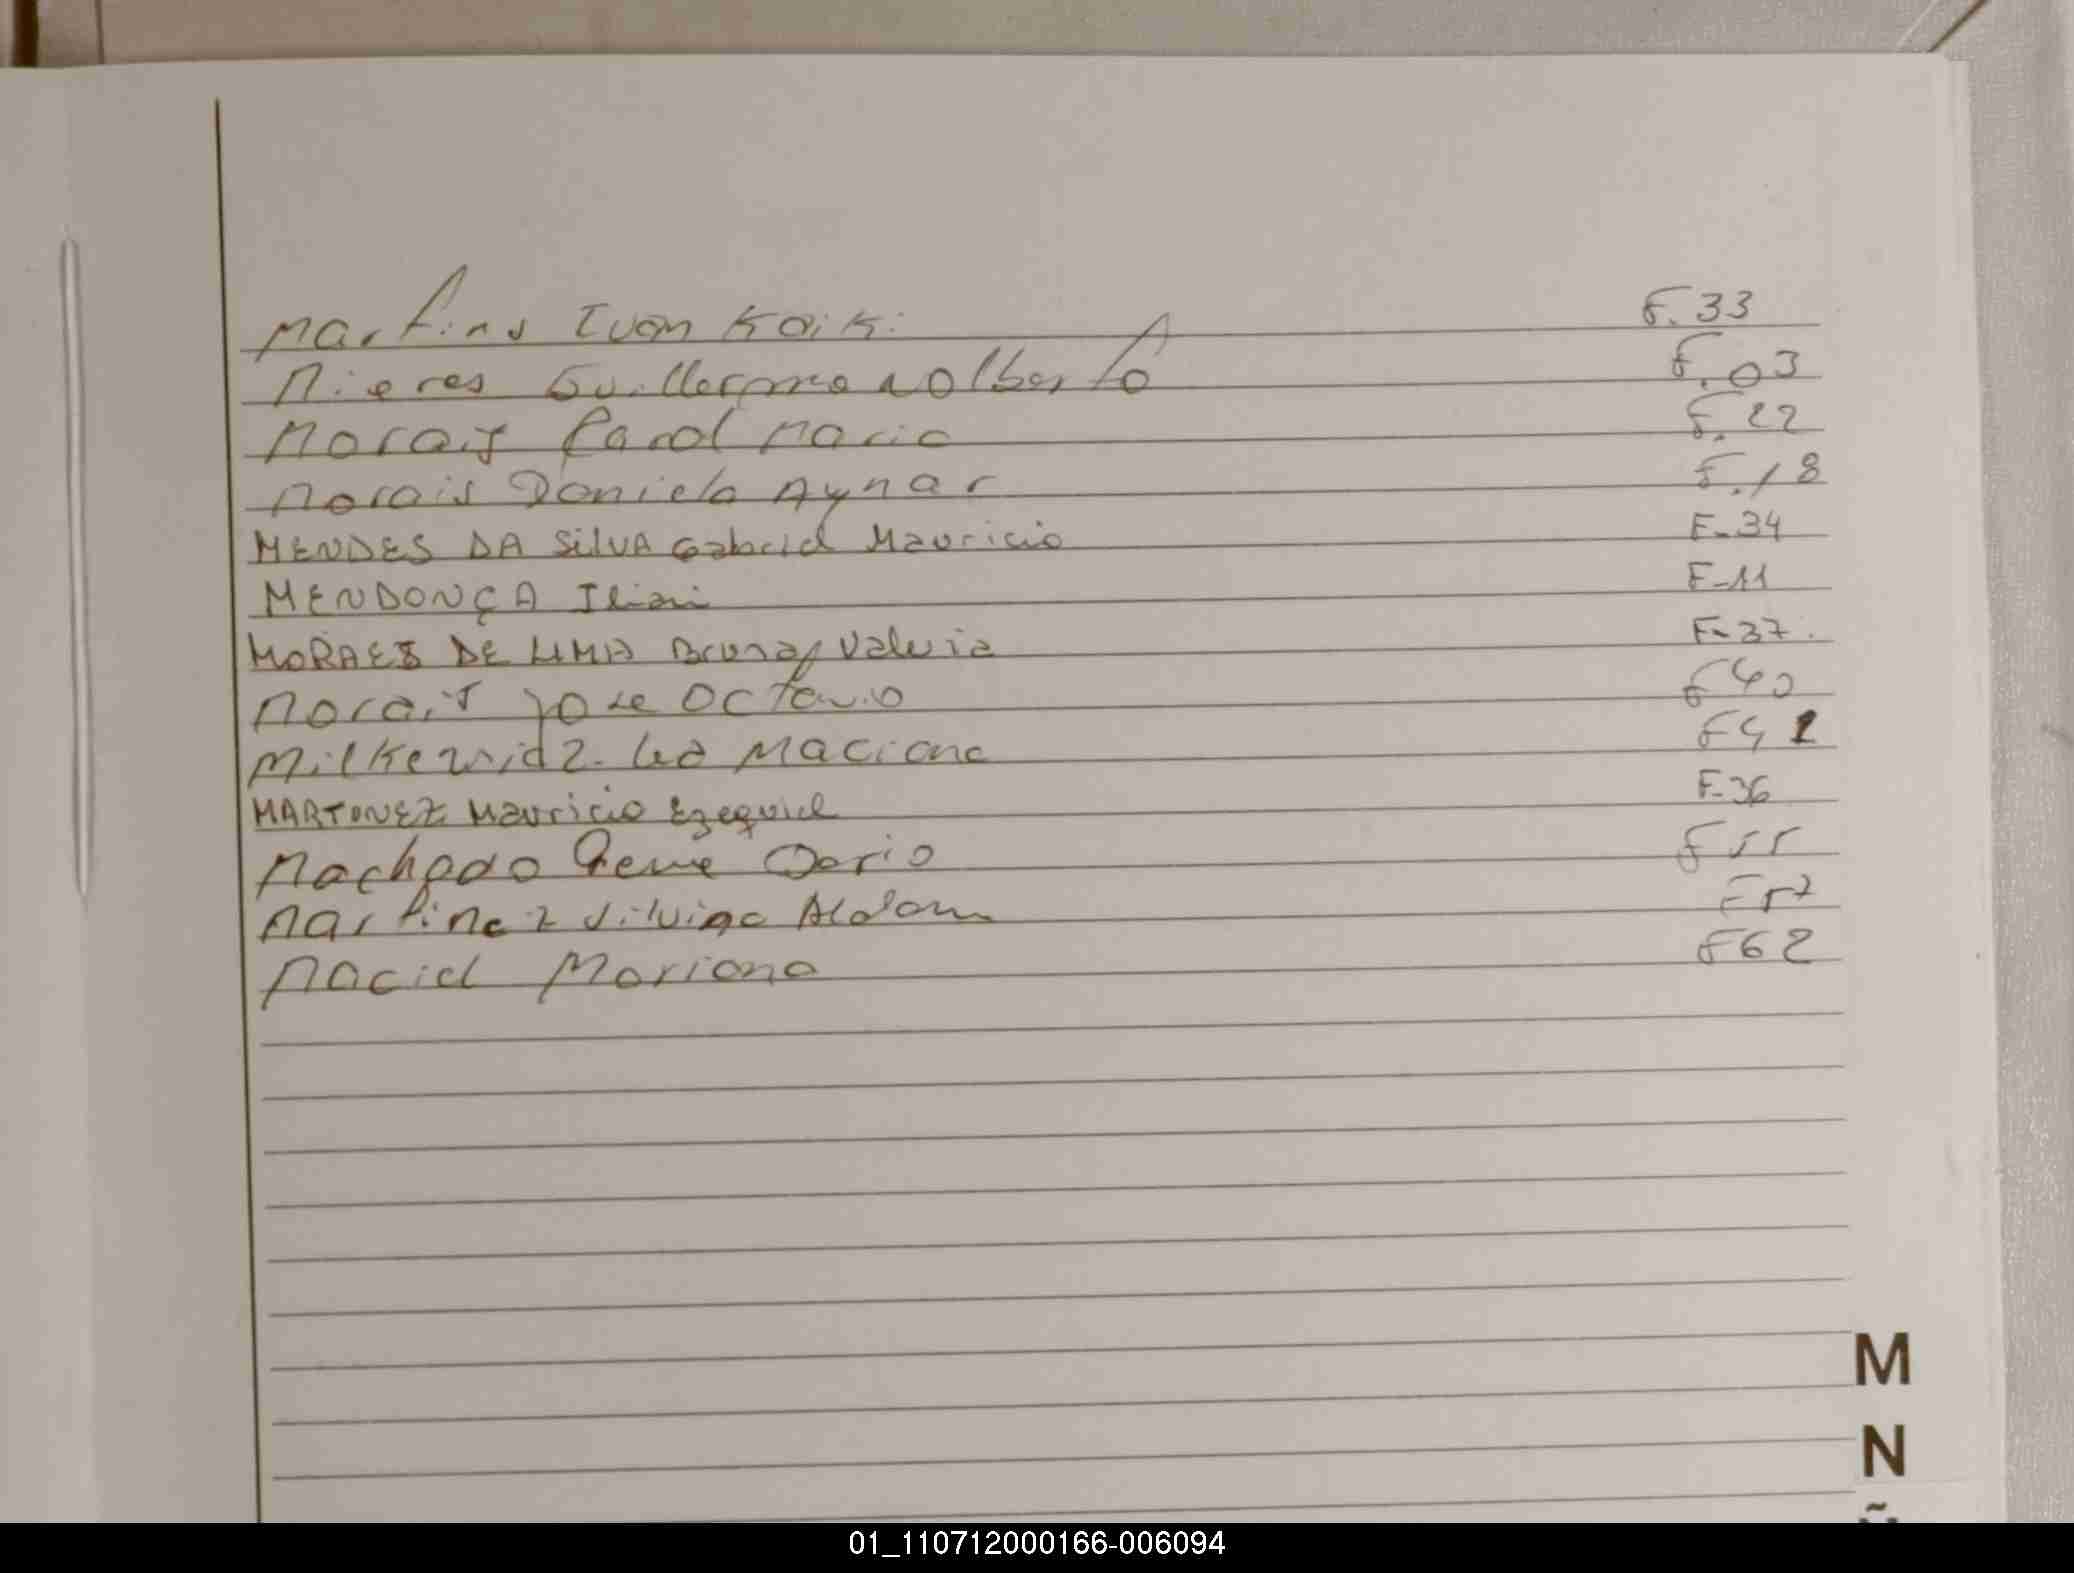 Martins Ivan Kaiki F.33
Mieres Guillermo Nolberto F.03
Morais Carol Maria F.22
Morais Daniela Aynar F.18
MENDES DA SilVA Gabriel Mauricio F-34
MENDONÇA Iliani F-11
MORAES DE LIMA Bruna Valeria F-37.
Morais Jose Octavio F40
Milkewidz Maciana F41
MARTONEZ Mauricio Ezequiel F-36
Machado Rene Dario F55
Martinez Silvina Aldana F57
Maciel Mariana F62
M
N
Ñ
01_110712000166-006094